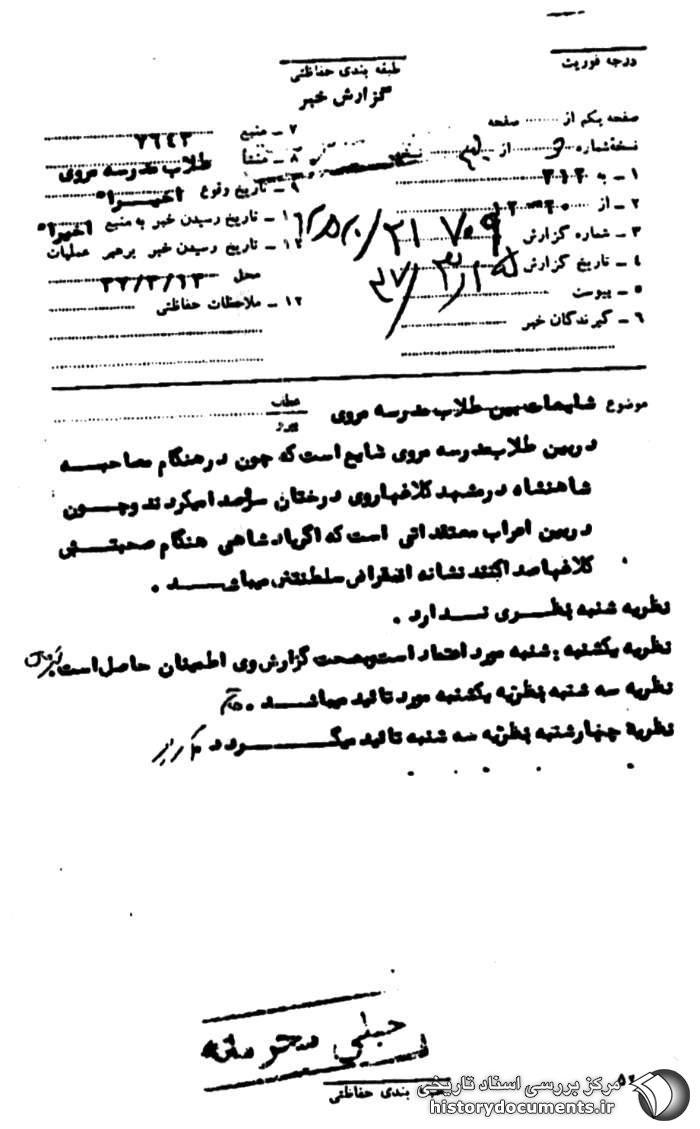 درجه فوریت
طبقه بندی حفاظتی
گزارش خبر
صفحه یکم از ........ صفحه
نسخه شماره ...... از ...... نسخه
۱ – به ۳۱۲
۲ – از
۳ – شماره گزارش
۴ – تاریخ گزارش
۵ – پیوست
۶ – گیرندگان خبر
۷ – منبع ۷۶۴۳
۸ – منشأ طلاب مدرسه مروی
۹ – تاریخ وقوع اخیراً
۱۰ – تاریخ رسیدن خبر به منبع اخیراً
۱۱ – تاریخ رسیدن خبر برهبر عملیات
محل
۱۲ – ملاحظات حفاظتی
موضوع شایعات بین طلاب مدرسه مروی
عطف
پیرو
در بین طلاب مدرسه مروی شایع است که چون در هنگام مصاحبه
شاهنشاه در مشهد کلاغها روی درختان سر و صدا میکردند و چون
در بین اعراب معتقداتی است که اگر پادشاهی هنگام صحبتش
کلاغها صدا کنند نشانه انقراض سلطنتش میباشد .
نظریه شنبه نظری ندارد .
نظریه یکشنبه : شنبه مورد اعتماد است و بصحت گزارش وی اطمینان حاصل است
نظریه سه شنبه نظریه یکشنبه مورد تائید میباشد .
نظریه چهارشنبه نظریه سه شنبه تائید میگردد
خیلی محرمانه
بندی حفاظتی
مرکز بررسی اسناد تاریخی
historydocuments.ir